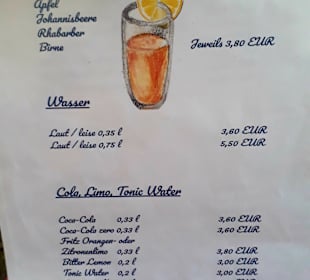 Apfel
Johannisbeere
Rhabarber
Birne
Jeweils 3,80 EUR
Wasser
Laut / leise 0,35 l 3,60 EUR
Laut / leise 0,75 l 5,50 EUR
Cola, Limo, Tonic Water
Coca-Cola 0,33 l 3,60 EUR
Coca-Cola zero 0,33 l 3,60 EUR
Fritz Orangen- oder
Zitronenlimo 0,33 l 3,80 EUR
Bitter Lemon 0,2 l 3,00 EUR
Tonic Water 0,2 l 3,00 EUR